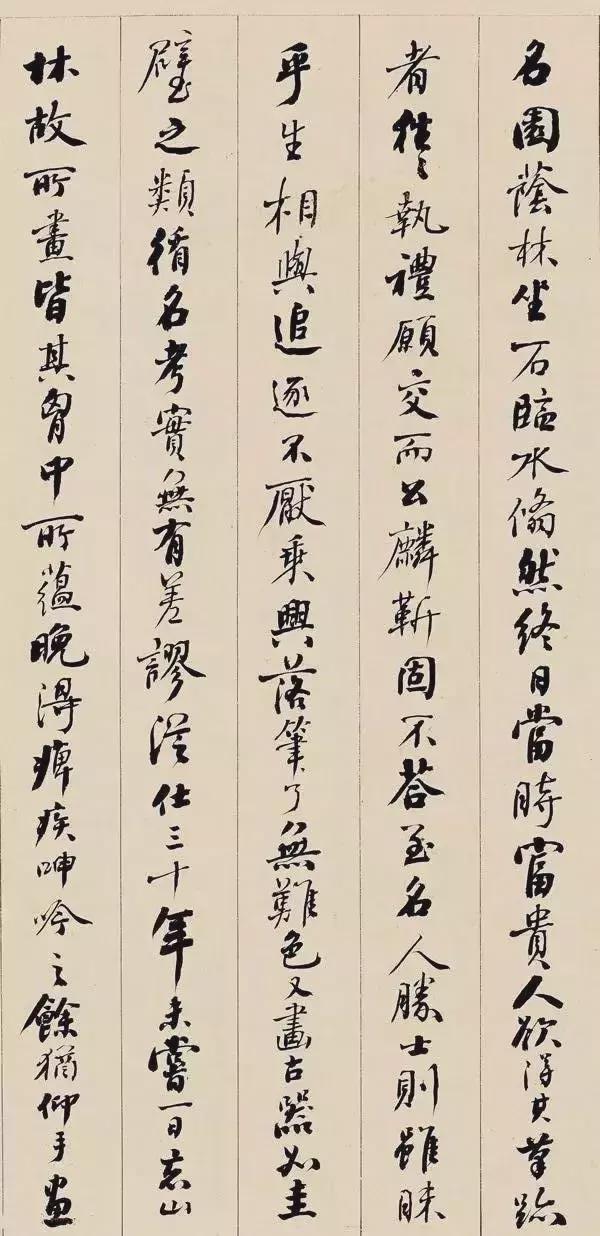 名園蔭林坐石臨水翛然終日當時富貴人欲得其筆跡
者往往執禮願交而公麟靳固不答至名人勝士則雖昧
平生相與追逐不厭乘興落筆了無難色又畫古器如圭
璧之類循名考實無有差謬從仕三十年未嘗一日忘山
林故所畫皆其胷中所蘊晚得痺疾呻吟之餘猶仰手畫